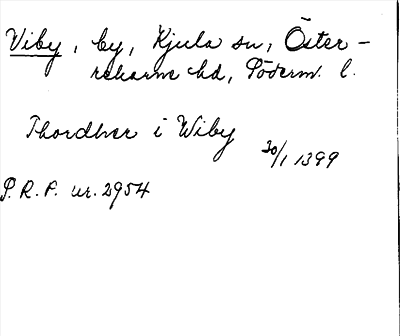 Viby, by, Kjula sn, Öster-
rekarne hd, Söderm. l.
Thordher i Wiby
30/1 1399
S.R.P. nr. 2954